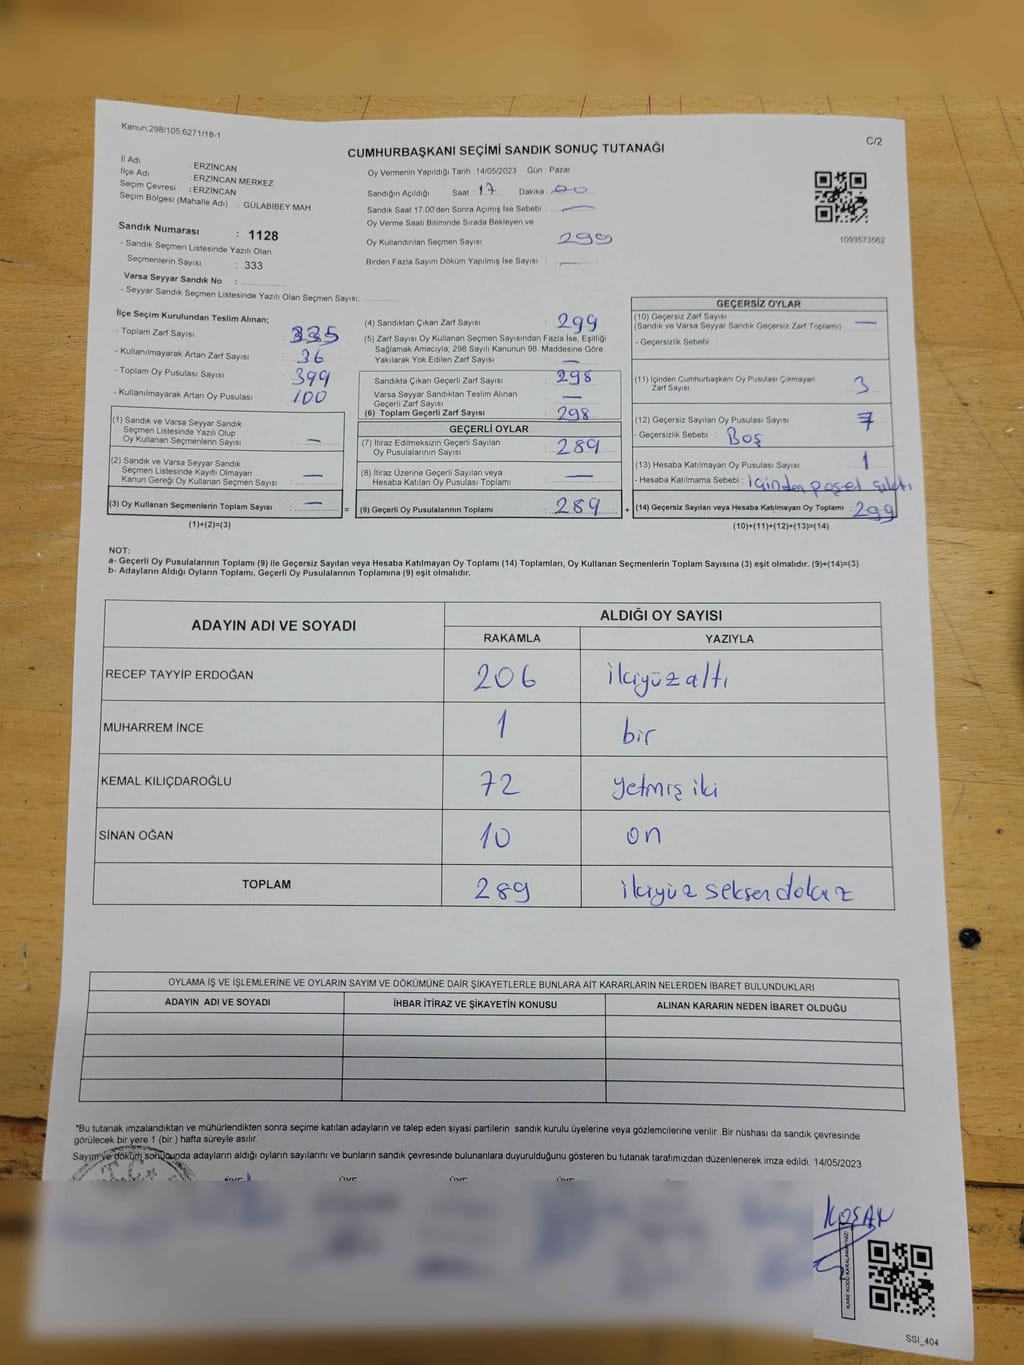 Kanun;298/105,6271/18-1
C/2
CUMHURBAŞKANI SEÇİMİ SANDIK SONUÇ TUTANAĞI
İl Adı : ERZİNCAN
İlçe Adı : ERZİNCAN MERKEZ
Seçim Çevresi : ERZİNCAN
Seçim Bölgesi (Mahalle Adı) : GÜLABİBEY MAH
Sandık Numarası : 1128
- Sandık Seçmen Listesinde Yazılı Olan
Seçmenlerin Sayısı : 333
Varsa Seyyar Sandık No :
- Seyyar Sandık Seçmen Listesinde Yazılı Olan Seçmen Sayısı:
Oy Vermenin Yapıldığı Tarih : 14/05/2023 Gün : Pazar
Sandığın Açıldığı Saat 17 Dakika 00
Sandık Saat 17.00'den Sonra Açımış İse Sebebi : —
Oy Verme Saati Bitiminde Sırada Bekleyen ve
Oy Kullandırılan Seçmen Sayısı : 299
Birden Fazla Sayım Döküm Yapılmış İse Sayısı : —
1093573562
İlçe Seçim Kurulundan Teslim Alınan;
- Toplam Zarf Sayısı : 335
- Kullanılmayarak Artan Zarf Sayısı : 36
- Toplam Oy Pusulası Sayısı : 399
- Kullanılmayarak Artan Oy Pusulası : 100
(1) Sandık ve Varsa Seyyar Sandık
Seçmen Listesinde Yazılı Olup
Oy Kullanan Seçmenlerin Sayısı : —
(2) Sandık ve Varsa Seyyar Sandık
Seçmen Listesinde Kayıtlı Olmayan
Kanun Gereği Oy Kullanan Seçmen Sayısı : —
(3) Oy Kullanan Seçmenlerin Toplam Sayısı : — =
(1)+(2)=(3)
(4) Sandıktan Çıkan Zarf Sayısı : 299
(5) Zarf Sayısı Oy Kullanan Seçmen Sayısından Fazla İse, Eşitliği
Sağlamak Amacıyla, 298 Sayılı Kanunun 98. Maddesine Göre
Yakılarak Yok Edilen Zarf Sayısı : —
Sandıkta Çıkan Geçerli Zarf Sayısı : 298
Varsa Seyyar Sandıktan Teslim Alınan
Geçerli Zarf Sayısı : —
(6) Toplam Geçerli Zarf Sayısı : 298
GEÇERLİ OYLAR
(7) İtiraz Edilmeksizin Geçerli Sayılan
Oy Pusulalarının Sayısı : 289
(8) İtiraz Üzerine Geçerli Sayılan veya
Hesaba Katılan Oy Pusulası Toplamı : —
(9) Geçerli Oy Pusulalarının Toplamı : 289 +
GEÇERSİZ OYLAR
(10) Geçersiz Zarf Sayısı
(Sandık ve Varsa Seyyar Sandık Geçersiz Zarf Toplamı) : —
- Geçersizlik Sebebi :
(11) İçinden Cumhurbaşkanı Oy Pusulası Çıkmayan
Zarf Sayısı : 3
(12) Geçersiz Sayılan Oy Pusulası Sayısı : 7
- Geçersizlik Sebebi : Boş
(13) Hesaba Katılmayan Oy Pusulası Sayısı : 1
- Hesaba Katılmama Sebebi : içinden poşet çıktı
(14) Geçersiz Sayılan veya Hesaba Katılmayan Oy Toplamı : 299
(10)+(11)+(12)+(13)=(14)
NOT:
a- Geçerli Oy Pusulalarının Toplamı (9) ile Geçersiz Sayılan veya Hesaba Katılmayan Oy Toplamı (14) Toplamları, Oy Kullanan Seçmenlerin Toplam Sayısına (3) eşit olmalıdır. (9)+(14)=(3)
b- Adayların Aldığı Oyların Toplamı, Geçerli Oy Pusulalarının Toplamına (9) eşit olmalıdır.
ADAYIN ADI VE SOYADI
ALDIĞI OY SAYISI
RAKAMLA YAZIYLA
RECEP TAYYİP ERDOĞAN 206 ikiyüzaltı
MUHARREM İNCE 1 bir
KEMAL KILIÇDAROĞLU 72 yetmiş iki
SİNAN OĞAN 10 on
TOPLAM 289 ikiyüz seksendokuz
OYLAMA İŞ VE İŞLEMLERİNE VE OYLARIN SAYIM VE DÖKÜMÜNE DAİR ŞİKAYETLERLE BUNLARA AİT KARARLARIN NELERDEN İBARET BULUNDUKLARI
ADAYIN ADI VE SOYADI İHBAR İTİRAZ VE ŞİKAYETİN KONUSU ALINAN KARARIN NEDEN İBARET OLDUĞU
*Bu tutanak imzalandıktan ve mühürlendikten sonra seçime katılan adayların ve talep eden siyasi partilerin sandık kurulu üyelerine veya gözlemcilerine verilir .Bir nüshası da sandık çevresinde
görülecek bir yere 1 (bir ) hafta süreyle asılır.
Sayım ve döküm sonucunda adayların aldığı oyların sayılarını ve bunların sandık çevresinde bulunanlara duyurulduğunu gösteren bu tutanak tarafımızdan düzenlenerek imza edildi. 14/05/2023
T.C.
ÜYE ÜYE ÜYE ÜYE
KOŞAN
KARE KODU KARALAMAYINIZ
SSI_404